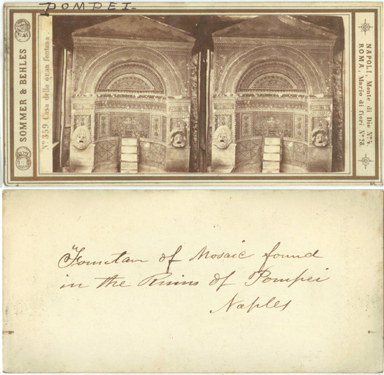 POMPEI.
SOMMER & BEHLES
Nº 359. Casa della gran fontana.
NAPOLI, Monte di Dio Nº 4.
ROMA, Mario di fiori Nº 28.
"Fountan of Mosaic found
in the Ruins of Pompei
Naples